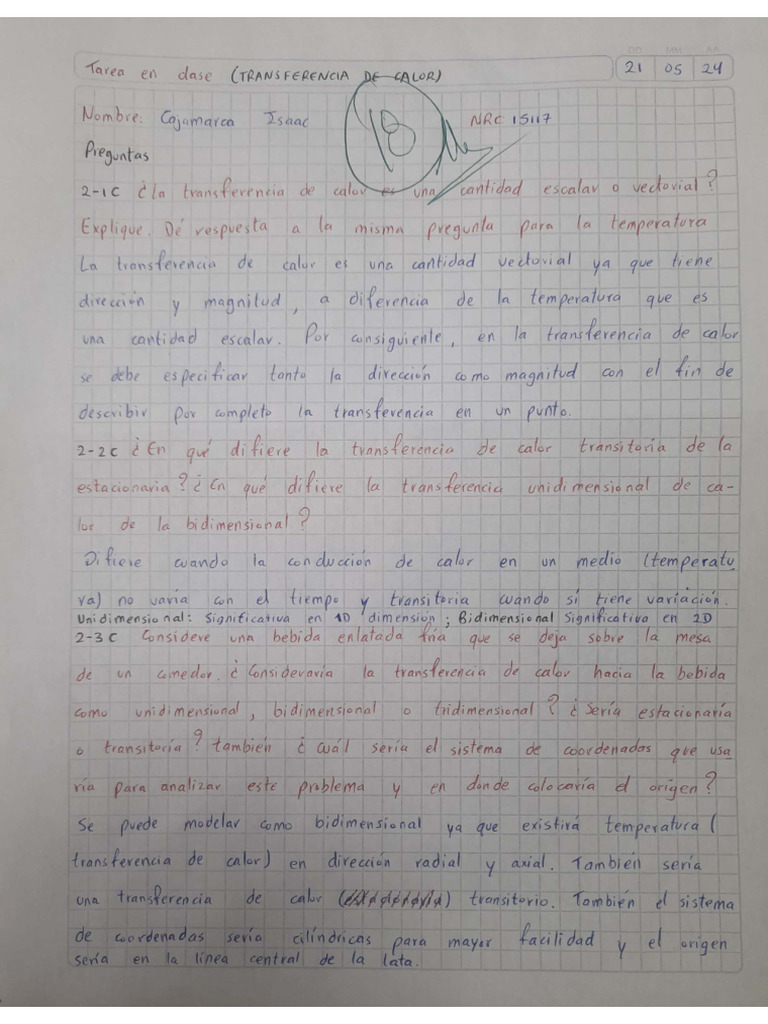 DD MM AA
Tarea en clase (TRANSFERENCIA DE CALOR) 21 05 24
Nombre: Cajamarca Isaac 18 NRC 15117
Preguntas
2-1C ¿La transferencia de calor es una cantidad escalar o vectorial?
Explique. Dé respuesta a la misma pregunta para la temperatura
La transferencia de calor es una cantidad vectorial ya que tiene
dirección y magnitud, a diferencia de la temperatura que es
una cantidad escalar. Por consiguiente, en la transferencia de calor
se debe especificar tanto la dirección como magnitud con el fin de
describir por completo la transferencia en un punto.
2-2C ¿En qué difiere la transferencia de calor transitoria de la
estacionaria? ¿En qué difiere la transferencia unidimensional de ca-
lor de la bidimensional?
Difiere cuando la conducción de calor en un medio (temperatu
ra) no varía con el tiempo y transitoria cuando sí tiene variación.
Unidimensional: Significativa en 1D dimensión; Bidimensional Significativa en 2D
2-3C Considere una bebida enlatada fría que se deja sobre la mesa
de un comedor. ¿Consideraría la transferencia de calor hacia la bebida
como unidimensional, bidimensional o tridimensional? ¿Sería estacionaria
o transitoria? también ¿cuál sería el sistema de coordenadas que usa
ría para analizar este problema y en donde colocaría el origen?
Se puede modelar como bidimensional ya que existirá temperatura (
transferencia de calor) en dirección radial y axial. También sería
una transferencia de calor ( ) transitorio. También el sistema
de coordenadas sería cilíndricas para mayor facilidad y el origen
sería en la línea central de la lata.